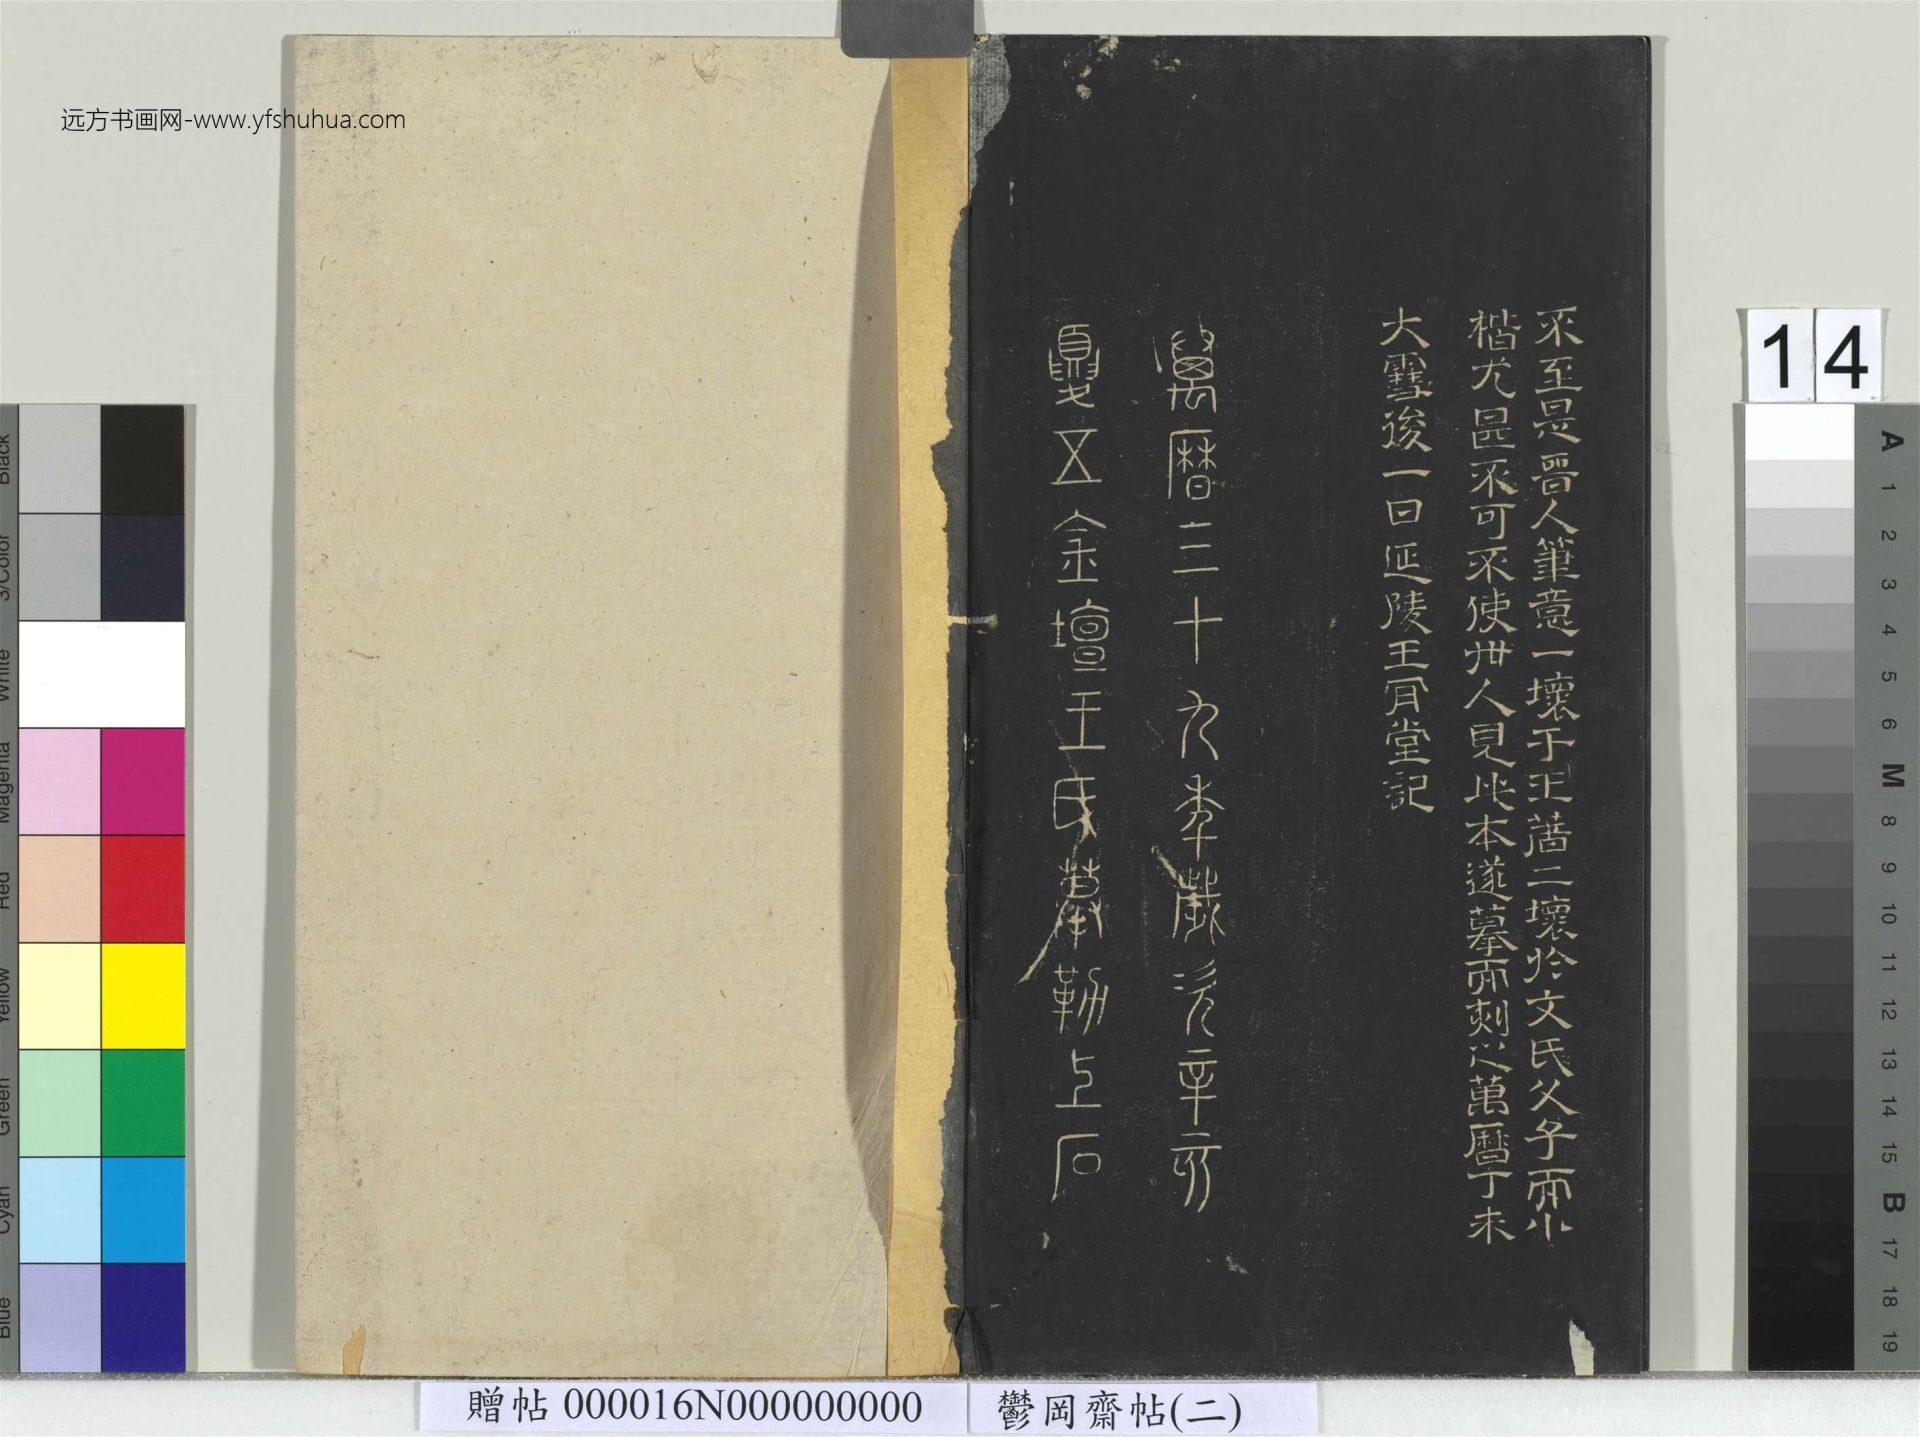 远方书画网-www.yfshuhua.com
不至是晋人筆意一壞于王著二壞於文氏父子而小
楷尤甚不可不使世人見此本遂摹而刻之萬曆丁未
大雪後一日延陵王肎堂記
萬曆三十九季歲次辛亥
夏五金壇王氏摹勒上石
14
A
1
2
3
4
5
6
M
8
9
10
11
12
13
14
15
B
17
18
19
Black
3/Color
White
Magenta
Red
Yellow
Green
Cyan
Blue
贈帖 000016N000000000
鬱岡齋帖(二)